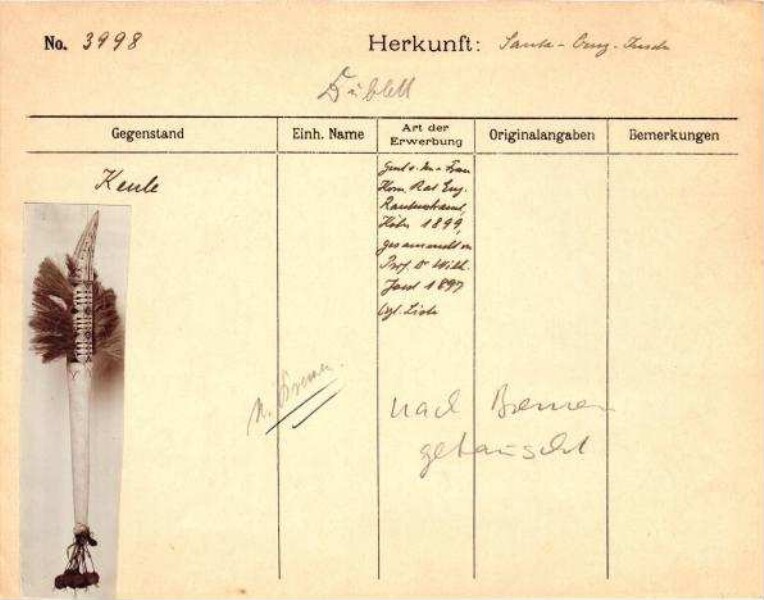 No. 3998 Herkunft: Santa-Cruz-Inseln
Dublett
Gegenstand Einh. Name Art der Erwerbung Originalangaben Bemerkungen
Keule
Frau
Kom. Rat Eug.
Rautenstrauch,
Köln 1899,
gesammelt v.
Prof. Dr Wilh.
Joest 1897
vgl. Liste
n. Bremen.
nach Bremen
getauscht